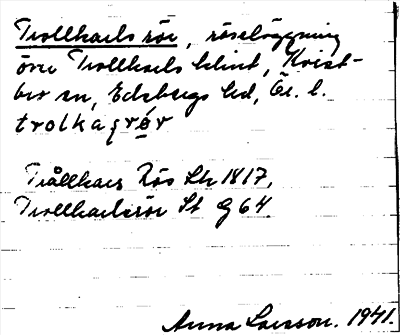 Trollkarls rör, röseläggning
över Trollkarls klint, Kvist-
bro sn, Edsbergs hd, Ör. l.
trolkaʂrør
Trållkars Rös Lk 1817,
Trollkarlsrör St G 64.
Anna Larsson. 1941.